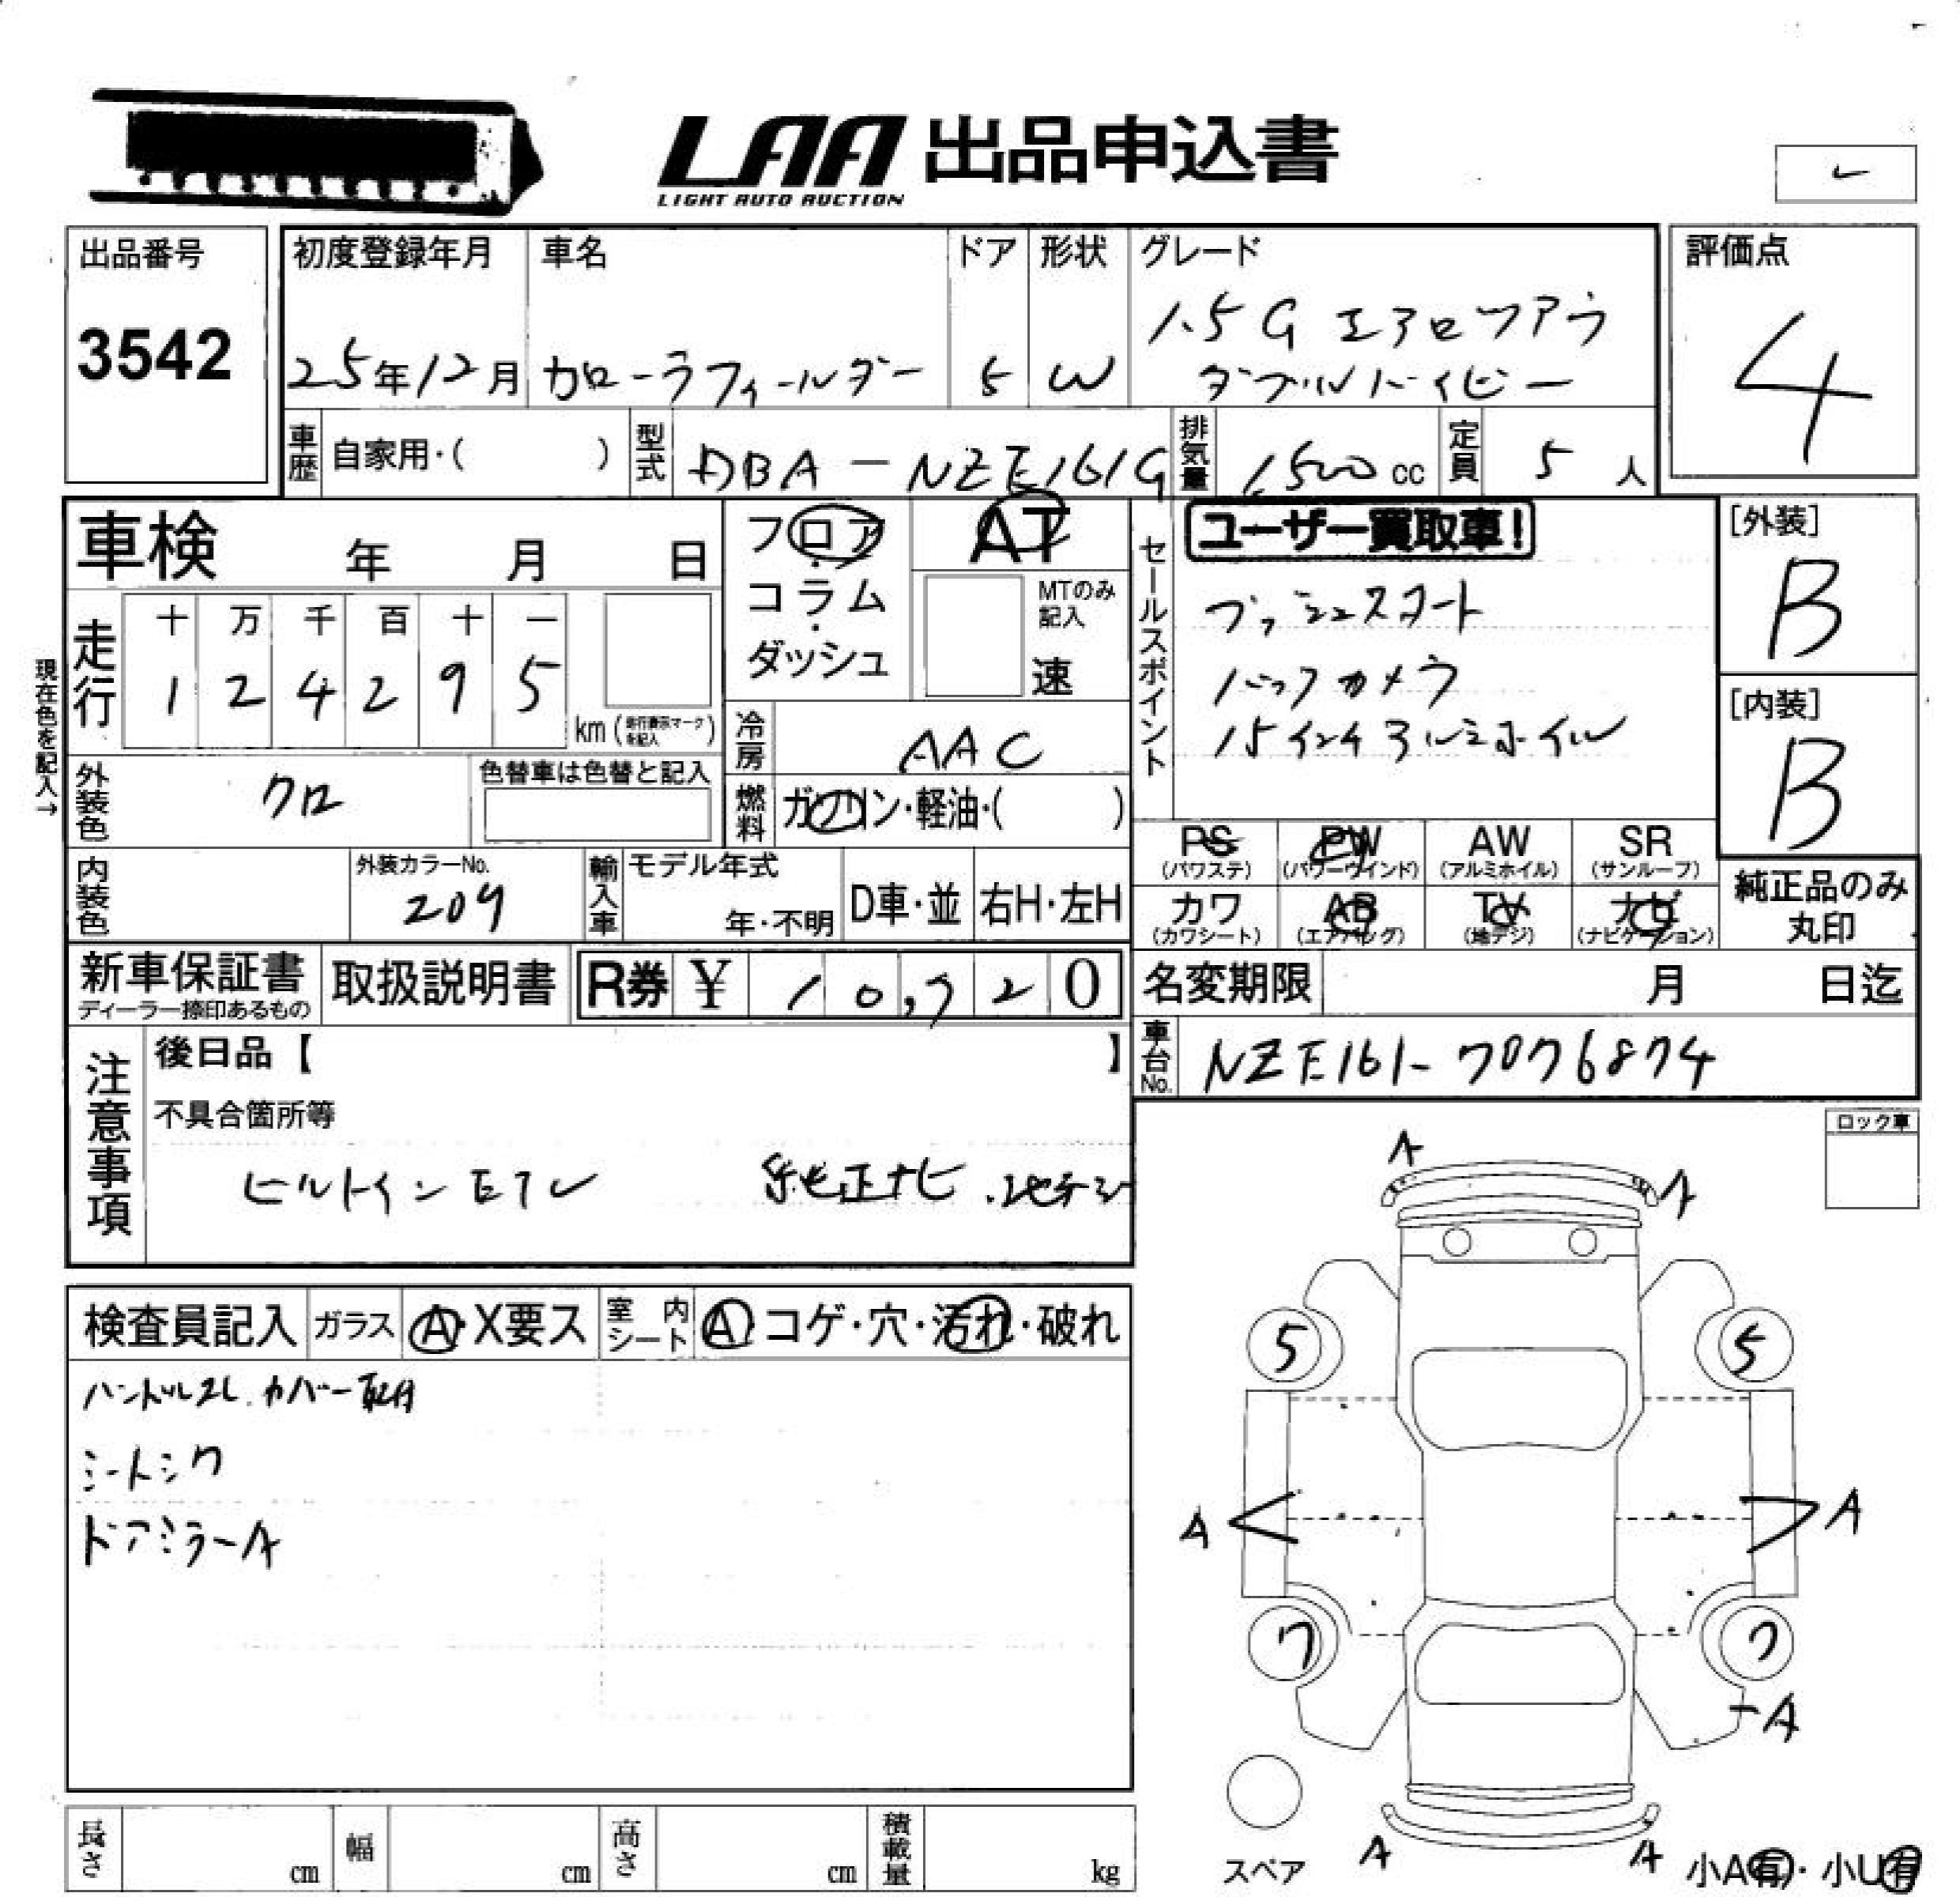 LAA 出品申込書
LIGHT AUTO AUCTION
出品番号
3542
初度登録年月
25年12月
車名
カローラフィールダー
ドア
5
形状
W
グレード
1.5G エアロツアラ
ダブルバイビー
評価点
4
車歴 自家用・( )
型式 DBA-NZE161G
排気量 1,500 cc
定員 5 人
車検 年 月 日
フロア・コラム・ダッシュ
AT
MTのみ記入
速
セールスポイント
ユーザー買取車!
プッシュスタート
バックカメラ
15インチアルミホイル
[外装]
B
[内装]
B
現在色を記入→
走行
十 万 千 百 十 一
1 2 4 2 9 5
km (走行表示マークを記入)
冷房 AAC
外装色 クロ
色替車は色替と記入
燃料 ガソリン・軽油・( )
PS (パワステ)
PW (パワーウインド)
AW (アルミホイル)
SR (サンルーフ)
カワ (カワシート)
AB (エアバッグ)
TV (地デジ)
ナビ (ナビゲーション)
純正品のみ丸印
内装色
外装カラーNo.
209
輸入車
モデル年式
年・不明
D車・並
右H・左H
新車保証書
ディーラー捺印あるもの
取扱説明書
R券 ¥ 10,720
名変期限 月 日迄
車台No. NZE161-7076874
注意事項
後日品【 】
不具合箇所等
ビルトインETC 純正ナビ.地デジ
ロック車
検査員記入
ガラス A・X要ス
室内シート A・コゲ・穴・汚れ・破れ
ハンドルスレ.カバー取付
シートシワ
ドアミラーA
A
A
5
5
A
A
7
7
A
スペア
A
A
小A有・小U有
長さ cm
幅 cm
高さ cm
積載量 kg